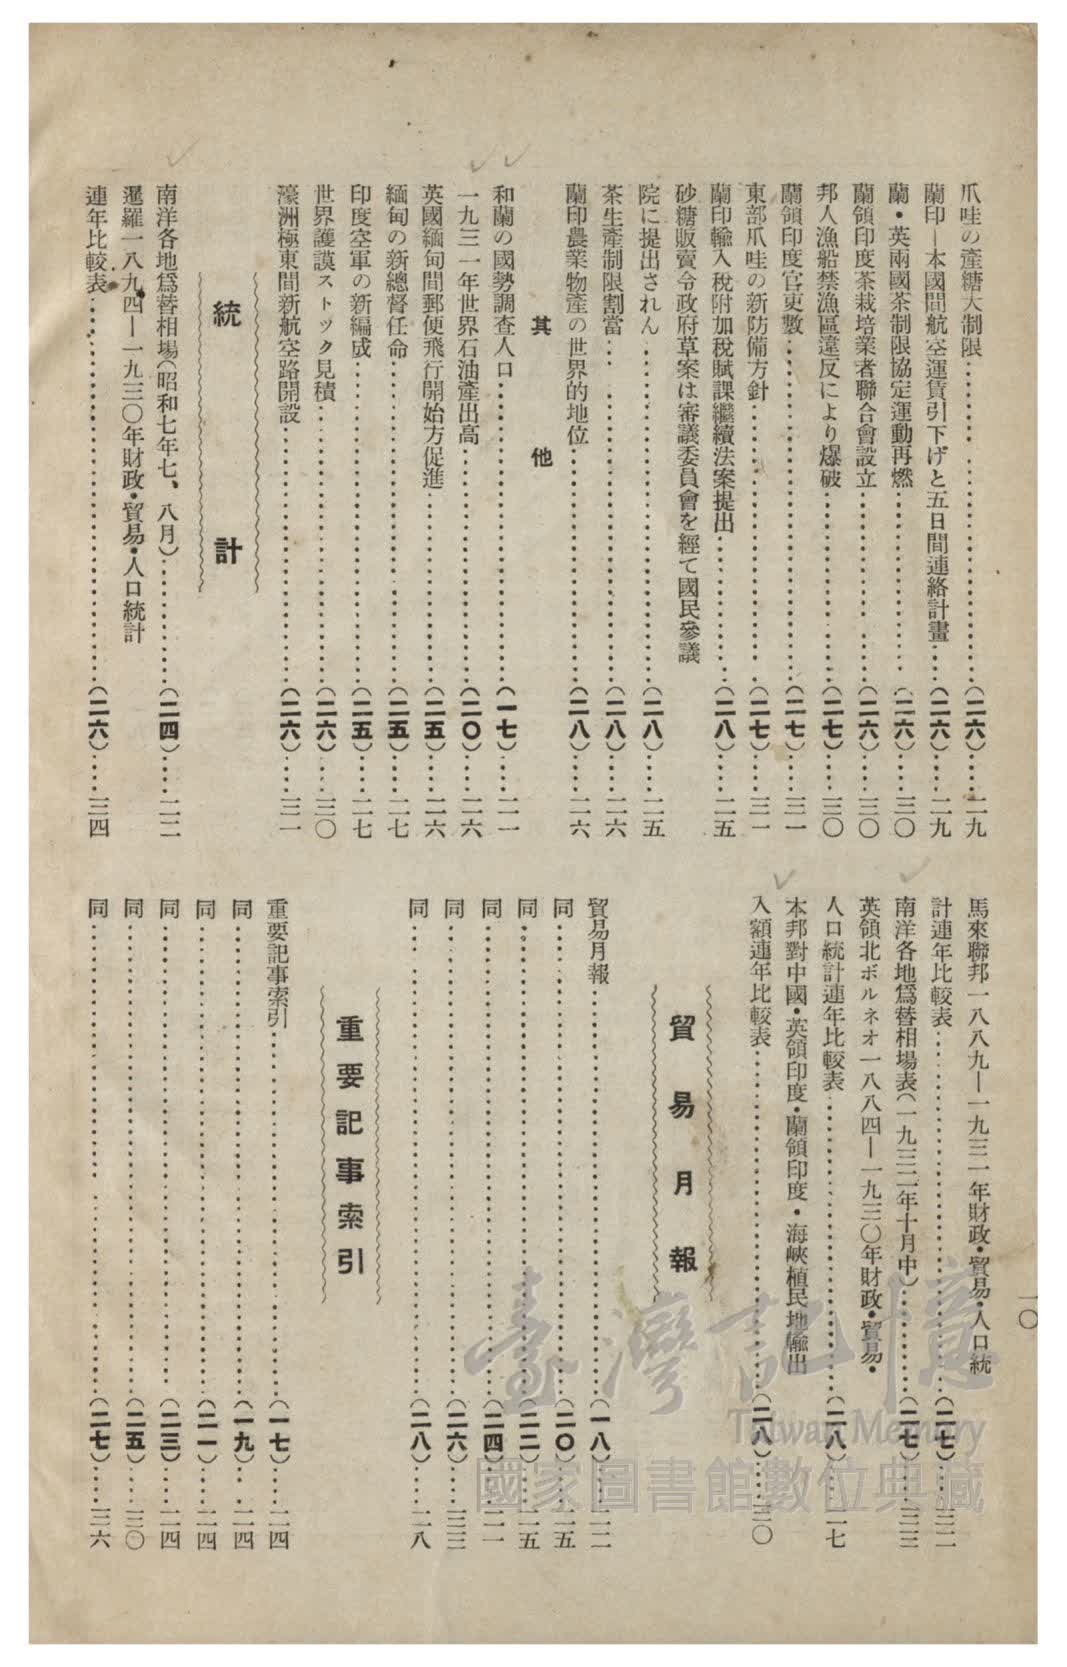 爪哇の產糖大制限……………………(二六)……二九
蘭印—本國間航空運賃引下げと五日間連絡計畫……(二六)……二九
蘭・英兩國茶制限協定運動再燃……………………(二六)……三〇
蘭領印度茶栽培業者聯合會設立……………………(二六)……三〇
邦人漁船禁漁區違反により爆破……………………(二七)……三〇
蘭領印度官吏數……………………(二七)……三一
東部爪哇の新防備方針……………………(二七)……三一
蘭印輸入稅附加稅賦課繼續法案提出……………………(二八)……二五
砂糖販賣令政府草案は審議委員會を經て國民參議
院に提出されん……………………(二八)……二五
茶生產制限割當……………………(二八)……二六
蘭印農業物產の世界的地位……………………(二八)……二六
其他
和蘭の國勢調查人口……………………(一七)……二一
一九三一年世界石油產出高……………………(二〇)……二六
英國緬甸間郵便飛行開始方促進……………………(二五)……二六
緬甸の新總督任命……………………(二五)……二七
印度空軍の新編成……………………(二五)……二七
世界護謨ストック見積……………………(二六)……三〇
濠洲極東間新航空路開設……………………(二六)……三一
統計
南洋各地爲替相場(昭和七年七、八月)……………………(二四)……二二
暹羅一八九四—一九三〇年財政・貿易・人口統計
連年比較表……………………(二六)……三四
一〇
馬來聯邦一八八九—一九三一年財政・貿易・人口統
計連年比較表……………………(二七)……三二
南洋各地爲替相場表(一九三二年十月中)……………………(二七)……三三
英領北ボルネオ一八八四—一九三〇年財政・貿易・
人口統計連年比較表……………………(二八)……二七
本邦對中國・英領印度・蘭領印度・海峽植民地輸出
入額連年比較表……………………(二八)……三〇
貿易月報
貿易月報……………………(一八)……二二
同……………………(二〇)……二五
同……………………(二二)……二五
同……………………(二四)……二一
同……………………(二六)……三三
同……………………(二八)……二八
重要記事索引
重要記事索引……………………(一七)……二四
同……………………(一九)……二四
同……………………(二一)……二四
同……………………(二三)……二四
同……………………(二五)……三〇
同……………………(二七)……三六
臺灣記憶
Taiwan Memory
國家圖書館數位典藏